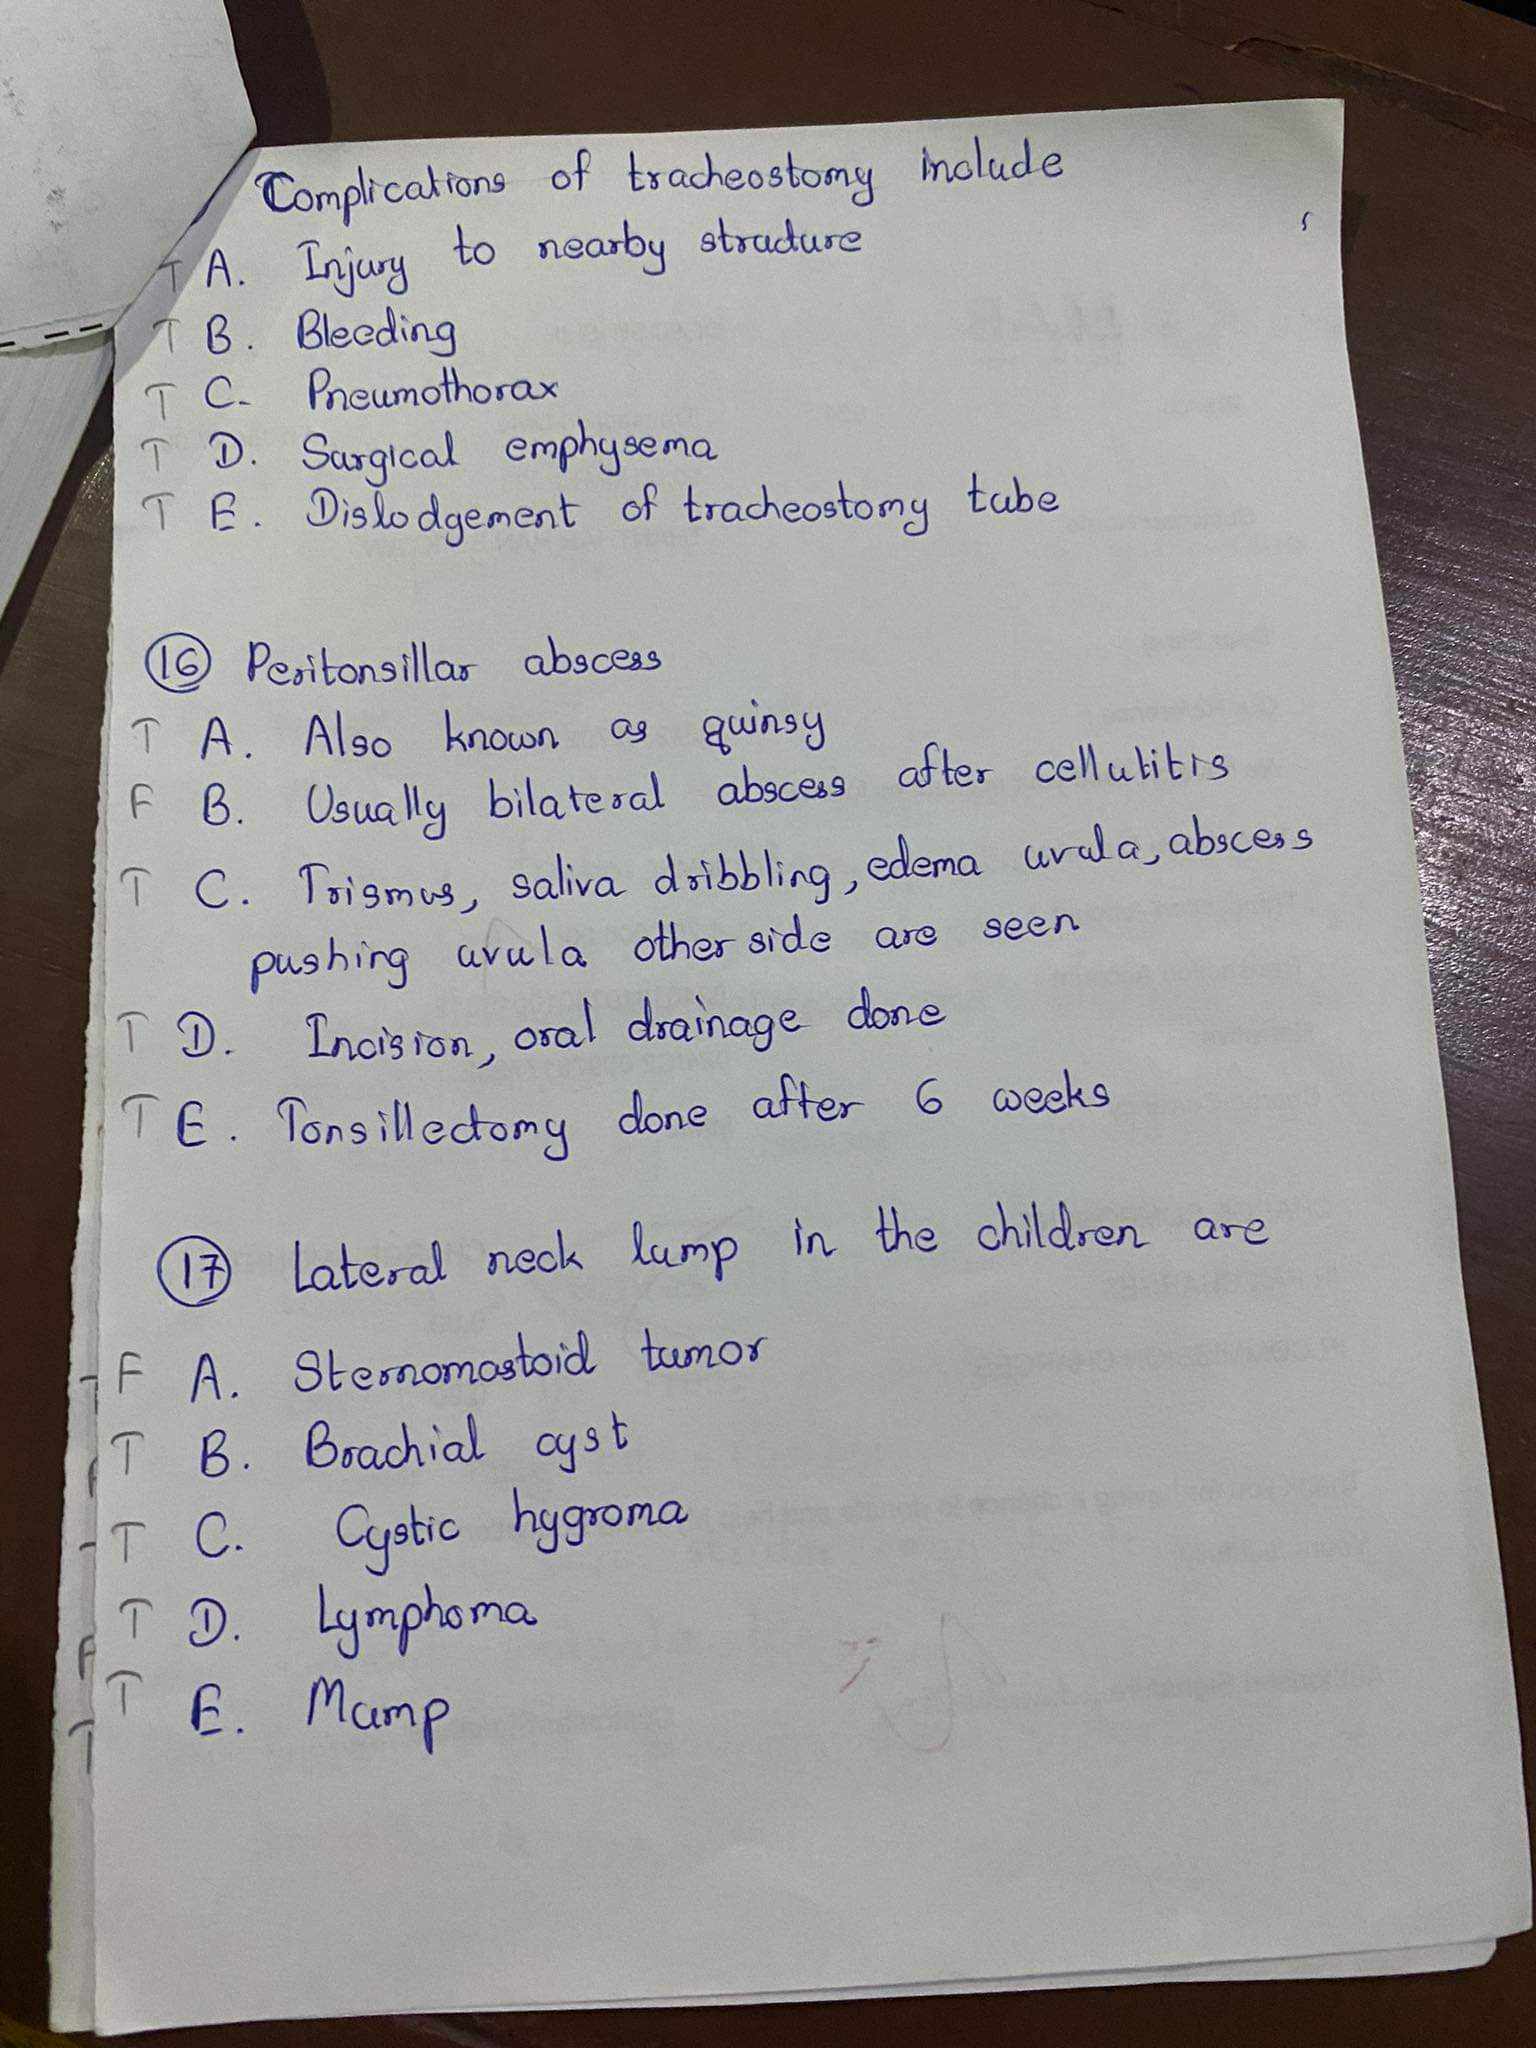 Complications of tracheostomy include
T A. Injury to nearby structure
T B. Bleeding
T C. Pneumothorax
T D. Surgical emphysema
T E. Dislodgement of tracheostomy tube
16 Peritonsillar abscess
T A. Also known as quinsy
F B. Usually bilateral abscess after cellulitis
T C. Trismus, saliva dribbling, edema uvula, abscess
pushing uvula other side are seen
T D. Incision, oral drainage done
T E. Tonsillectomy done after 6 weeks
17 Lateral neck lump in the children are
F A. Sternomastoid tumor
T B. Brachial cyst
T C. Cystic hygroma
T D. Lymphoma
T E. Mump